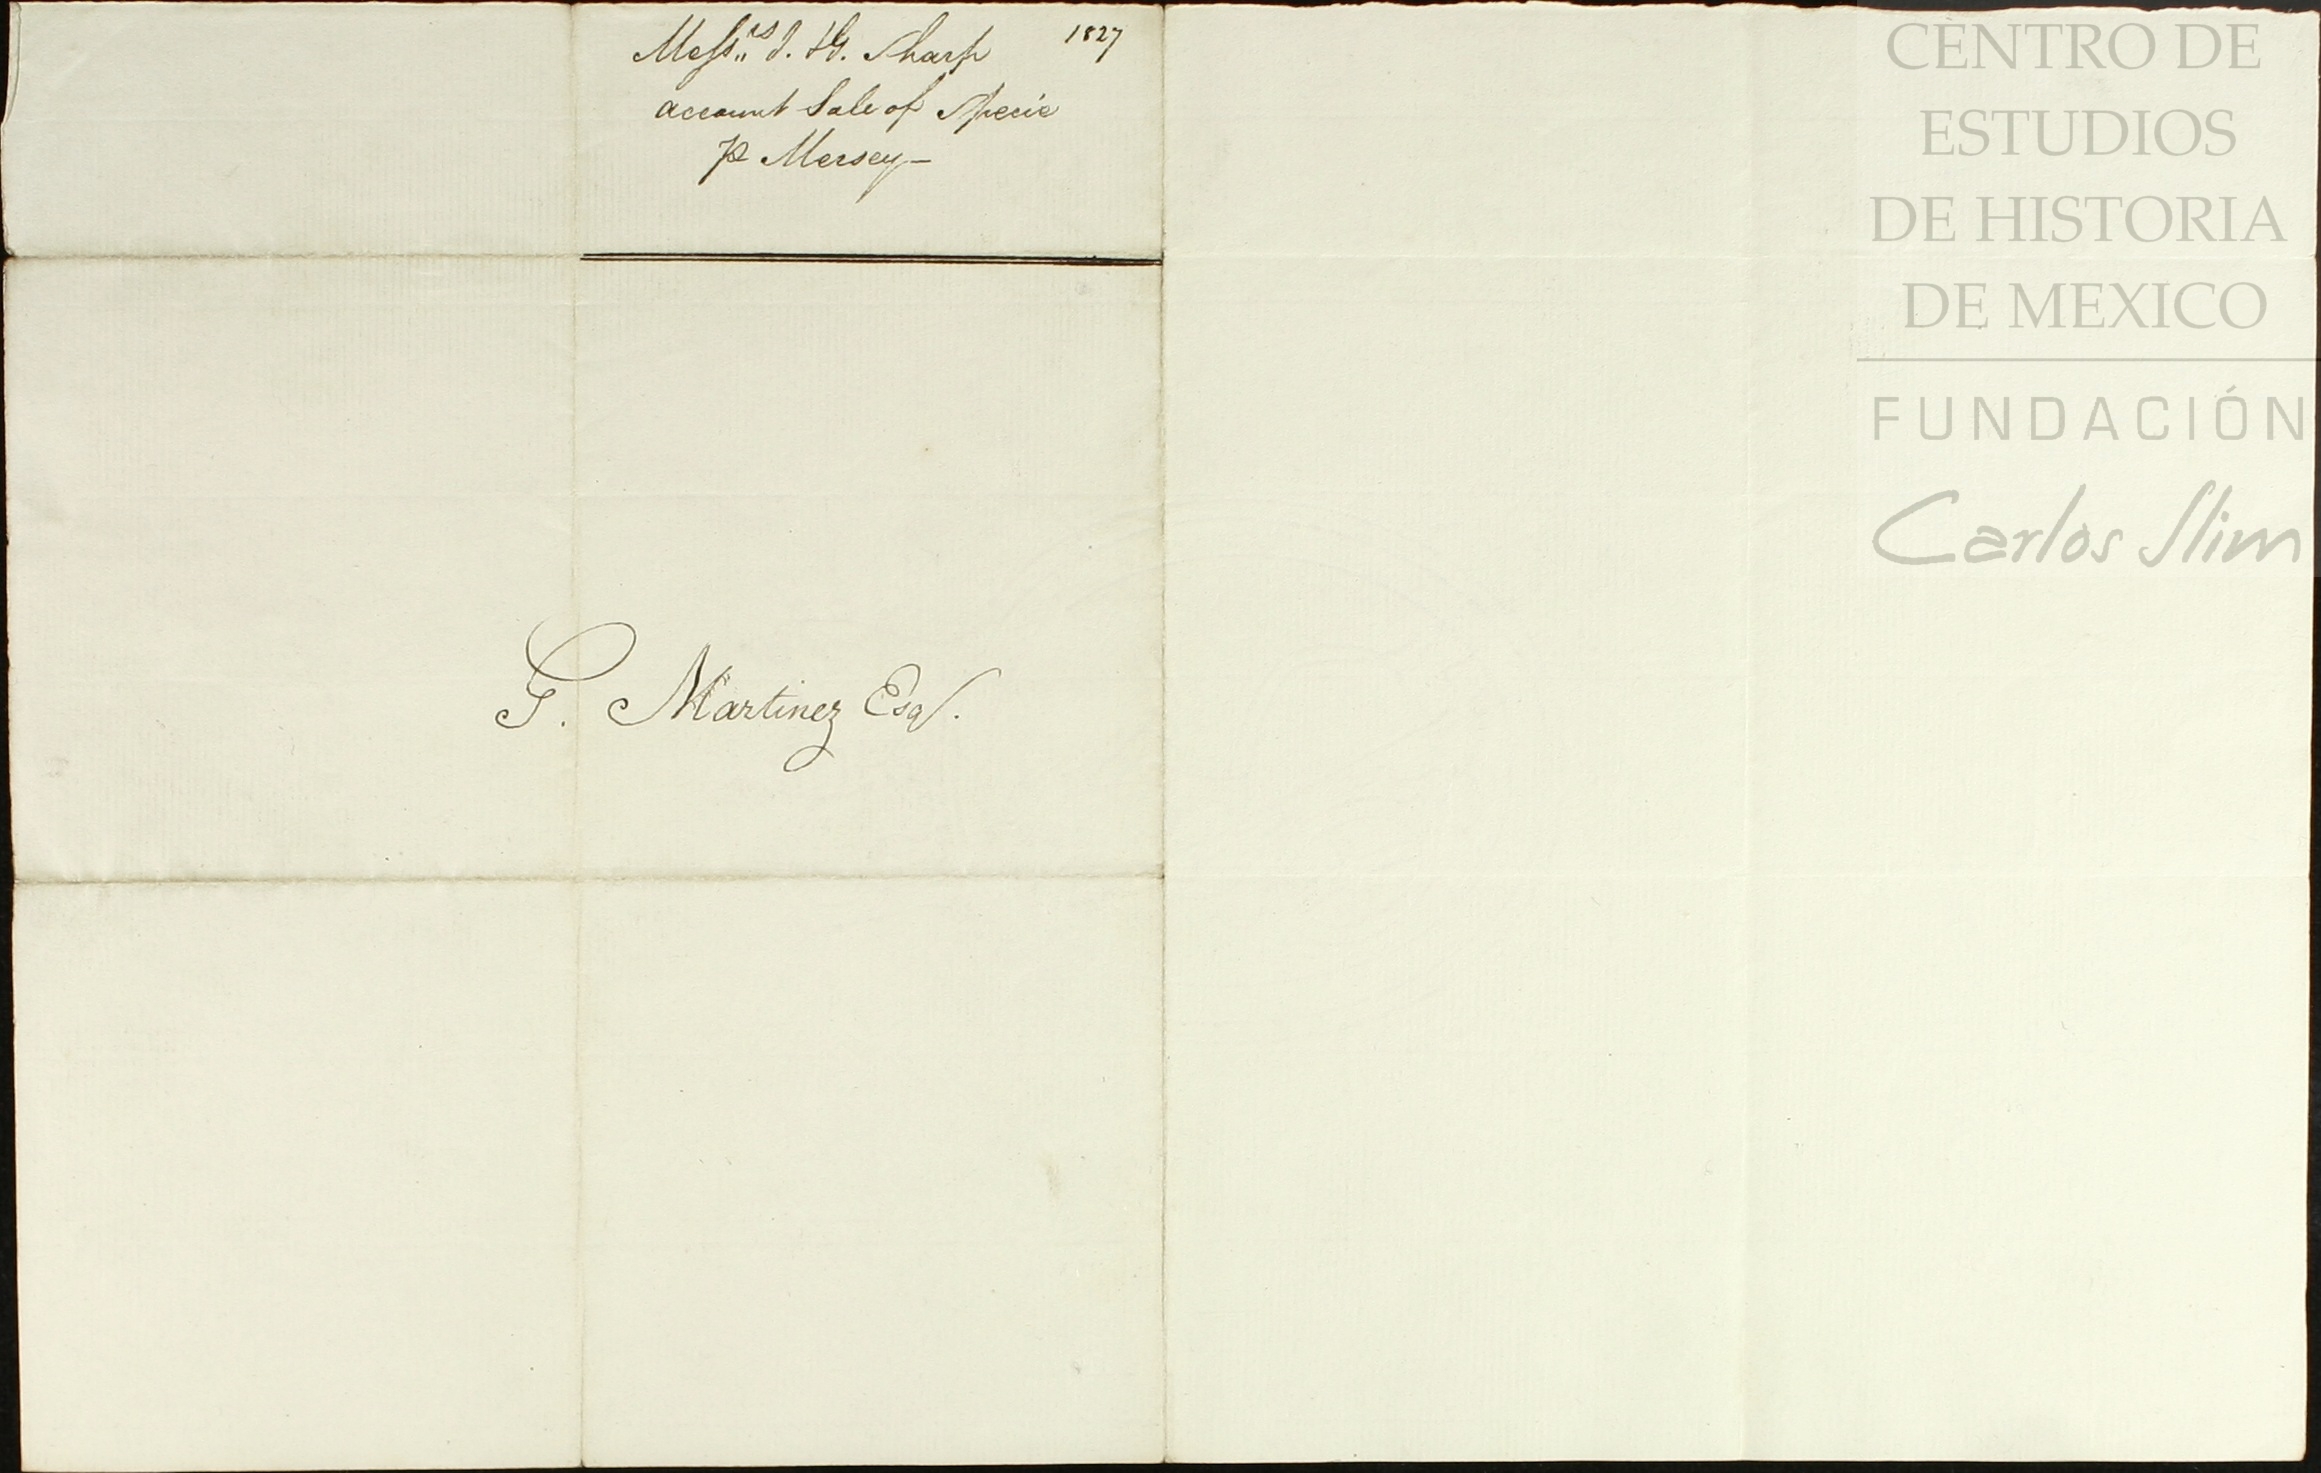 Messrs J. & G. Sharp 1827
account Sale of Specie
p Mersey—
G. Martinez Esqr.
CENTRO DE
ESTUDIOS
DE HISTORIA
DE MEXICO
FUNDACIÓN
Carlos Slim